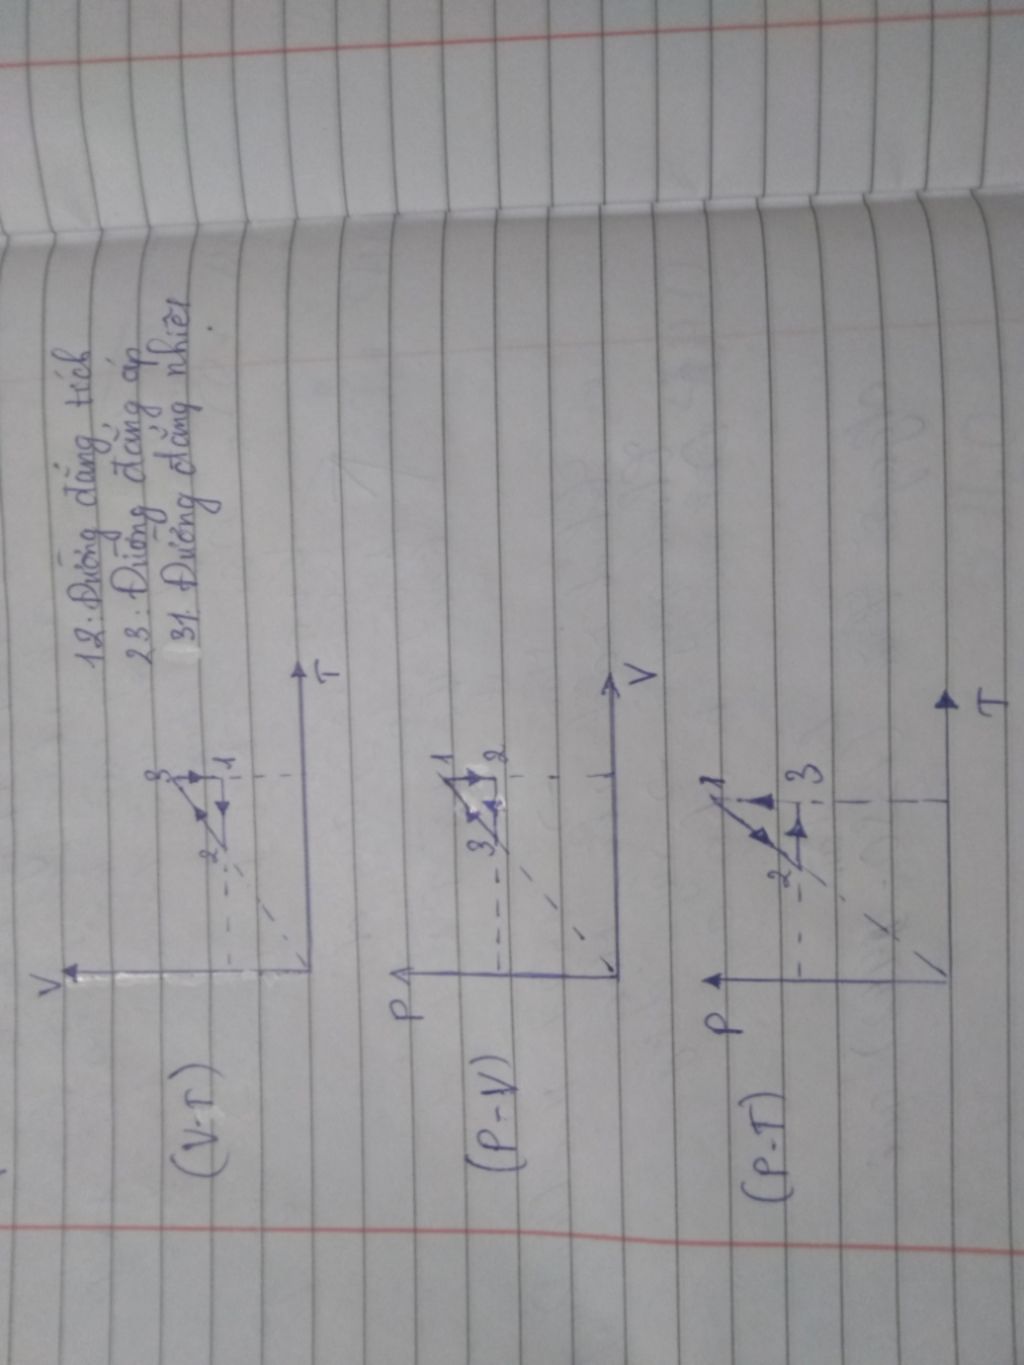 12: Đường đẳng tích
23: Đường đẳng áp
31: Đường đẳng nhiệt
(V-T)
V
3
2
1
T
(P-V)
P
1
3
2
V
(P-T)
P
1
2
3
T